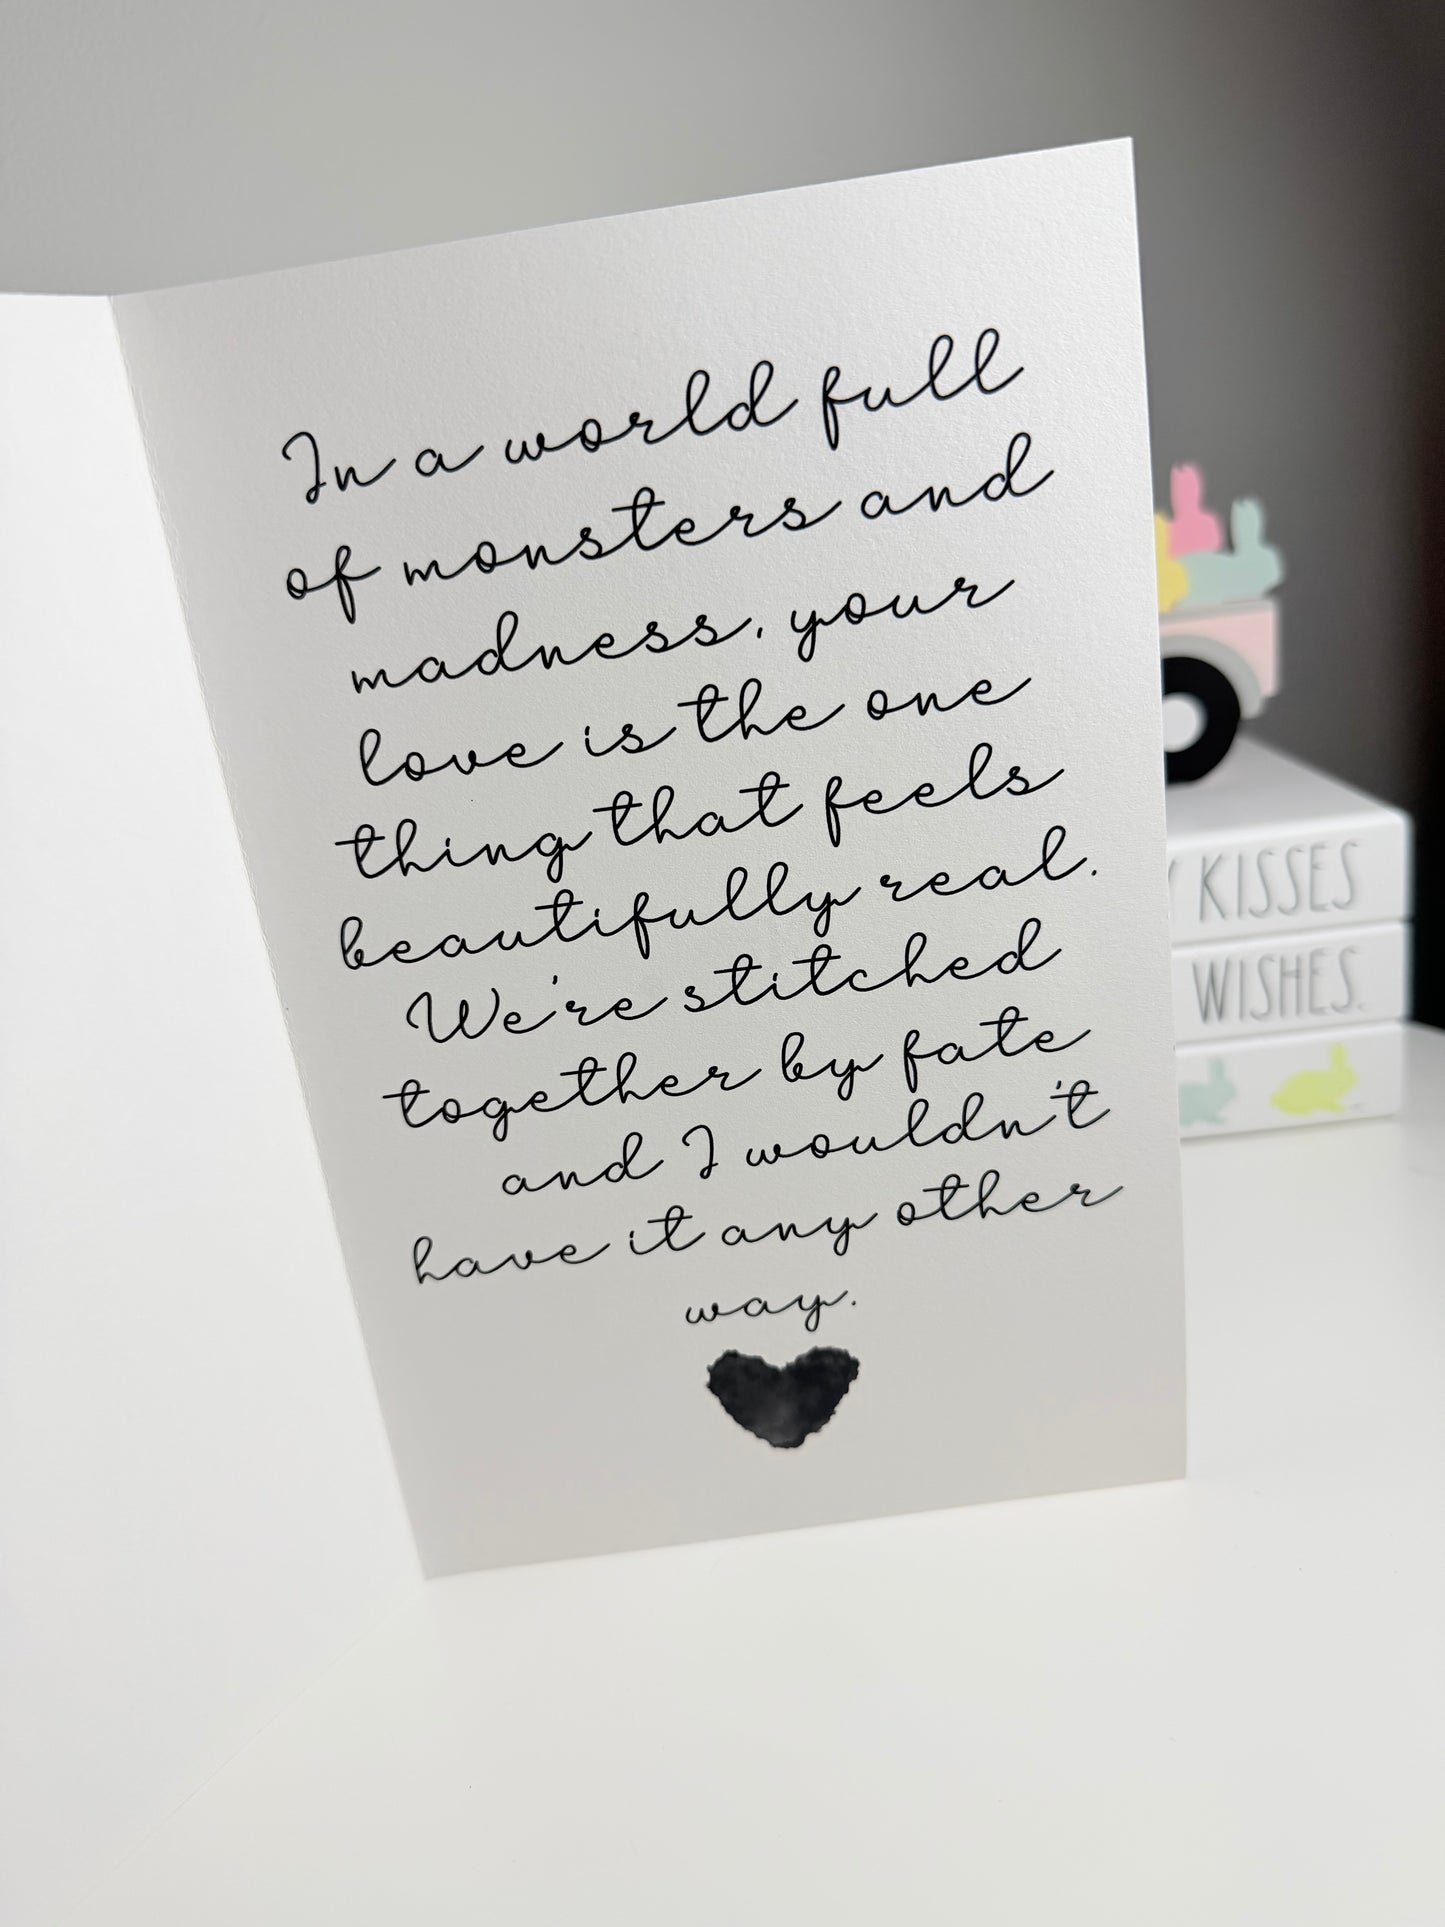 In a world full
of monsters and
madness, your
love is the one
thing that feels
beautifully real.
We're stitched
together by fate
and I wouldn't
have it any other
way.
KISSES
WISHES.